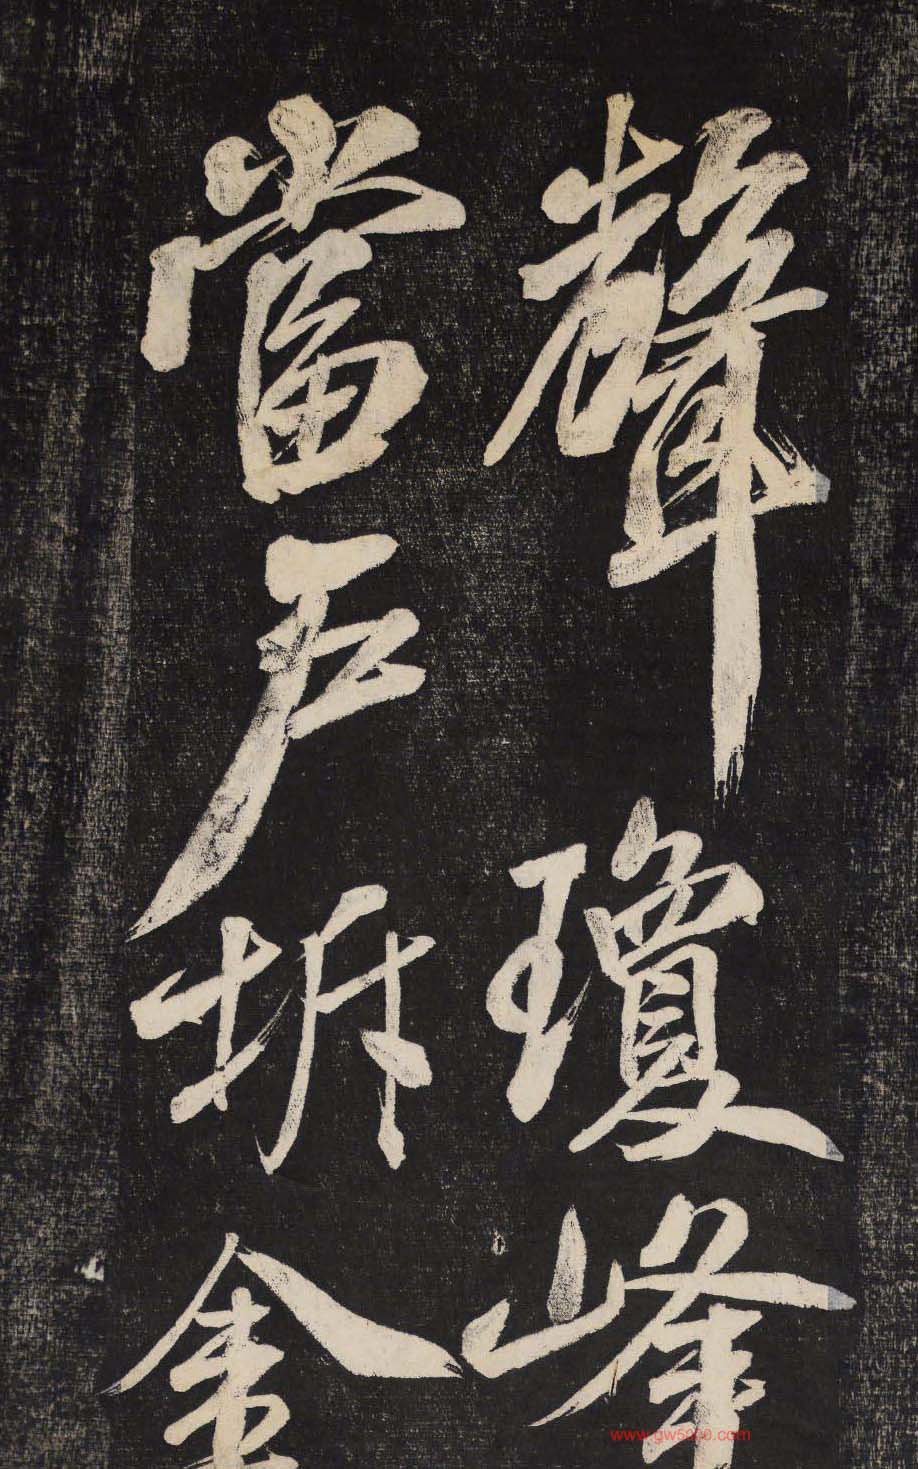 聲瓊峰
當戶拆金
www.gw5000.com